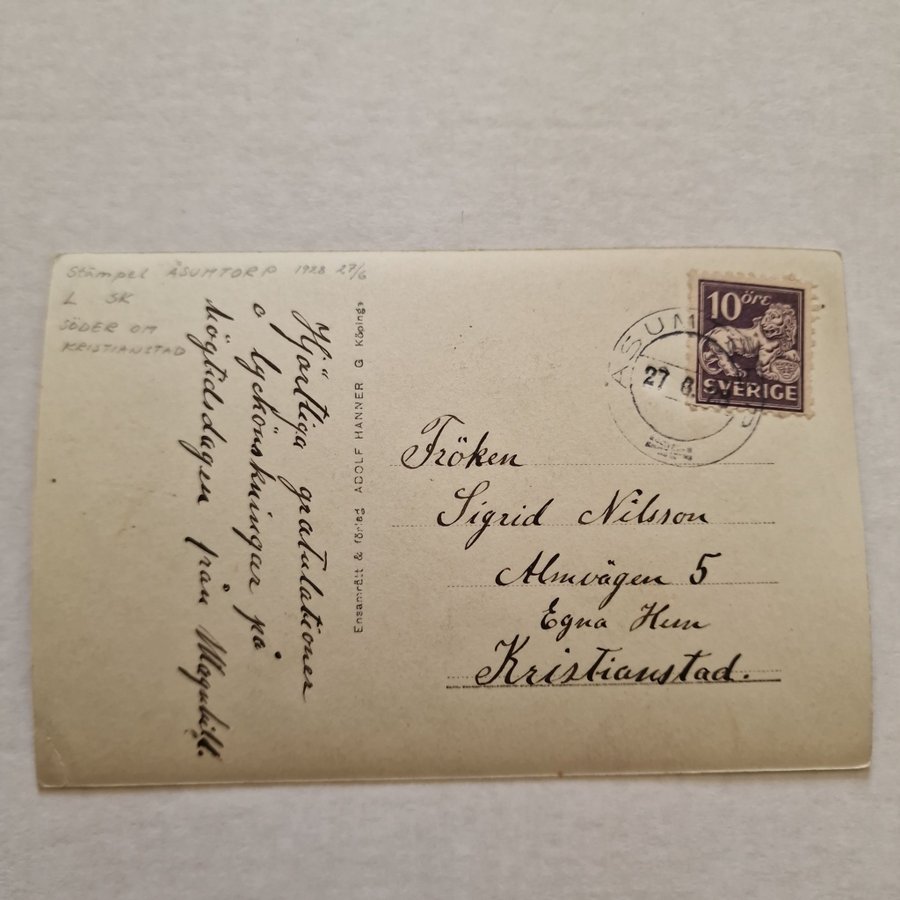 Stämpel ÅSUMTORP 1928 27/6
L SK
SÖDER OM
KRISTIANSTAD
Hjärtliga gratulationer
o lyckönskningar på
högtidsdagen från
Ensamrätt & förlag ADOLF HANNER G Köping
10 öre
SVERIGE
ÅSUM
27 6
Fröken
Sigrid Nilsson
Almvägen 5
Egna Hem
Kristianstad.